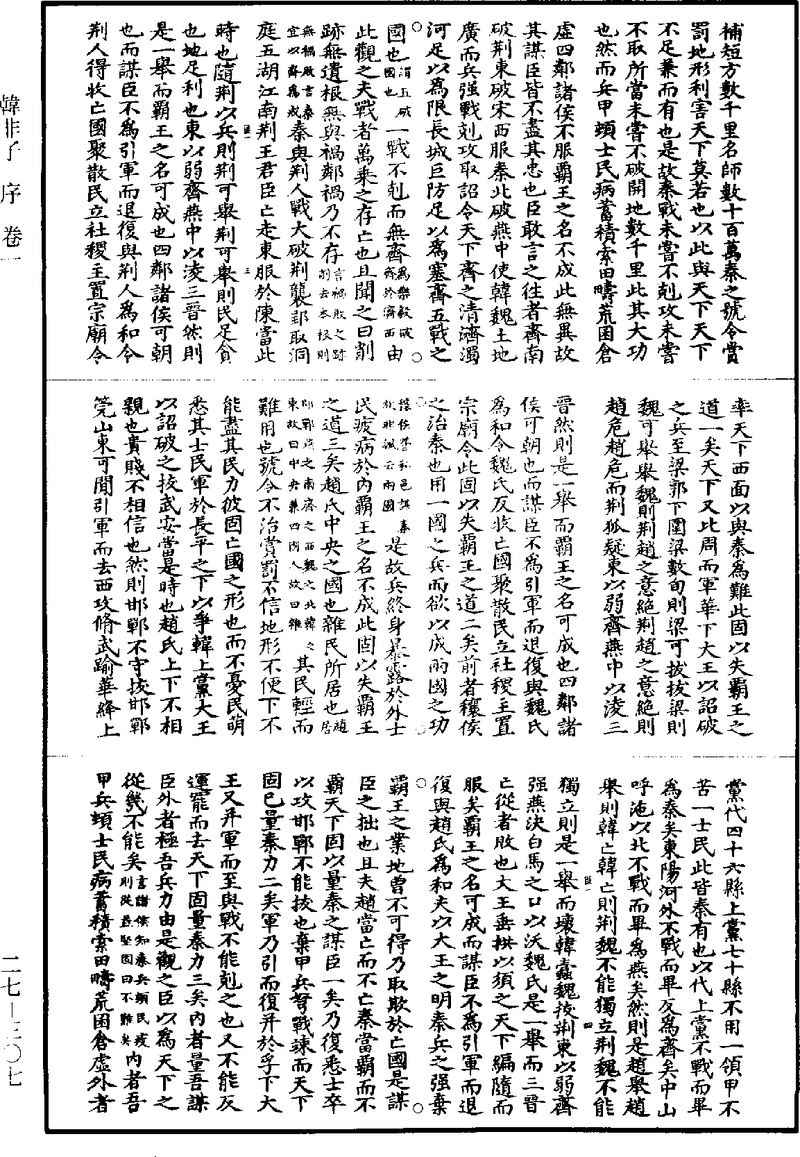 補短方數千里名師數十百萬秦之號令賞
罰地形利害天下莫若也以此與天下天下
不足兼而有也是故秦戰未嘗不剋攻未嘗
不取所當未嘗不破開地數千里此其大功
也然而兵甲頓士民病蓄積索田疇荒囷倉
虛四鄰諸侯不服霸王之名不成此無異故
其謀臣皆不盡其忠也臣敢言之往者齊南
破荆東破宋西服秦北破燕中使韓魏土地
廣而兵强戰剋攻取詔令天下齊之清濟濁
河足以為限長城巨防足以為塞齊五戰之
國也謂五破國也一戰不剋而無齊為樂毅破齊於濟西由
此觀之夫戰者萬乘之存亡也且聞之曰削
跡無遺根無與禍鄰禍乃不存言禍敗之跡削去本根則
無禍敗言秦宜以齊為戒秦與荆人戰大破荆襲郢取洞
庭五湖江南荆王君臣亡走東服於陳當此
時也隨荆以兵則荆可舉荆可舉則民足貪
也地足利也東以弱齊燕中以淩三晉然則
是一舉而霸王之名可成也四鄰諸侯可朝
也而謀臣不為引軍而退復與荆人為和令
荆人得收亡國聚散民立社稷主置宗廟令
率天下西面以與秦為難此固以失霸王之
道一矣天下又比周而軍華下大王以詔破
之兵至梁郭下圍梁數旬則梁可拔拔梁則
魏可舉舉魏則荆趙之意絶荆趙之意絶則
趙危趙危而荆狐疑東以弱齊燕中以淩三
晉然則是一舉而霸王之名可成也四鄰諸
侯可朝也而謀臣不為引軍而退復與魏氏
為和令魏氏反收亡國聚散民立社稷主置
宗廟令此固以失霸王之道二矣前者穰侯
之治秦也用一國之兵而欲以成兩國之功
穰侯營私邑謀秦故非誠云兩國是故兵終身暴露於外士
民疲病於內霸王之名不成此固以失霸王
之道三矣趙氏中央之國也雜民所居也趙居
邯鄲燕之南齊之西魏之北韓之東故曰中央兼四國人故曰雜其民輕而
難用也號令不治賞罰不信地形不便下不
能盡其民力彼固亡國之形也而不憂民萌
悉其士民軍於長平之下以爭韓上黨大王
以詔破之拔武安當是時也趙氏上下不相
親也貴賤不相信也然則邯鄲不守拔邯鄲
筦山東可聞引軍而去西攻脩武踰華絳上
黨代四十六縣上黨七十縣不用一領甲不
苦一士民此皆秦有也以代上黨不戰而畢
為秦矣東陽河外不戰而畢反為齊矣中山
呼沲以北不戰而畢為燕矣然則是趙舉趙
舉則韓亡韓亡則荆魏不能獨立荆魏不能
獨立則是一舉而壞韓蠹魏拔荆東以弱齊
强燕決白馬之口以沃魏氏是一舉而三晉
亡從者敗也大王垂拱以須之天下編隨而
服矣霸王之名可成而謀臣不為引軍而退
復與趙氏為和夫以大王之明秦兵之强棄
霸王之業地曾不可得乃取欺於亡國是謀
臣之拙也且夫趙當亡而不亡秦當霸而不
霸天下固以量秦之謀臣一矣乃復悉士卒
以攻邯鄲不能拔也棄甲兵弩戰竦而天下
固已量秦力二矣軍乃引而復并於孚下大
王又并軍而至與戰不能剋之也又不能反
運罷而去天下固量秦力三矣內者量吾謀
臣外者極吾兵力由是觀之臣以為天下之
從幾不能矣言諸侯知秦兵頓民疲則從益堅固曰不難矣內者吾
甲兵頓士民病蓄積索田疇荒囷倉虛外者
韓非子 序 卷一
二七—三〇七